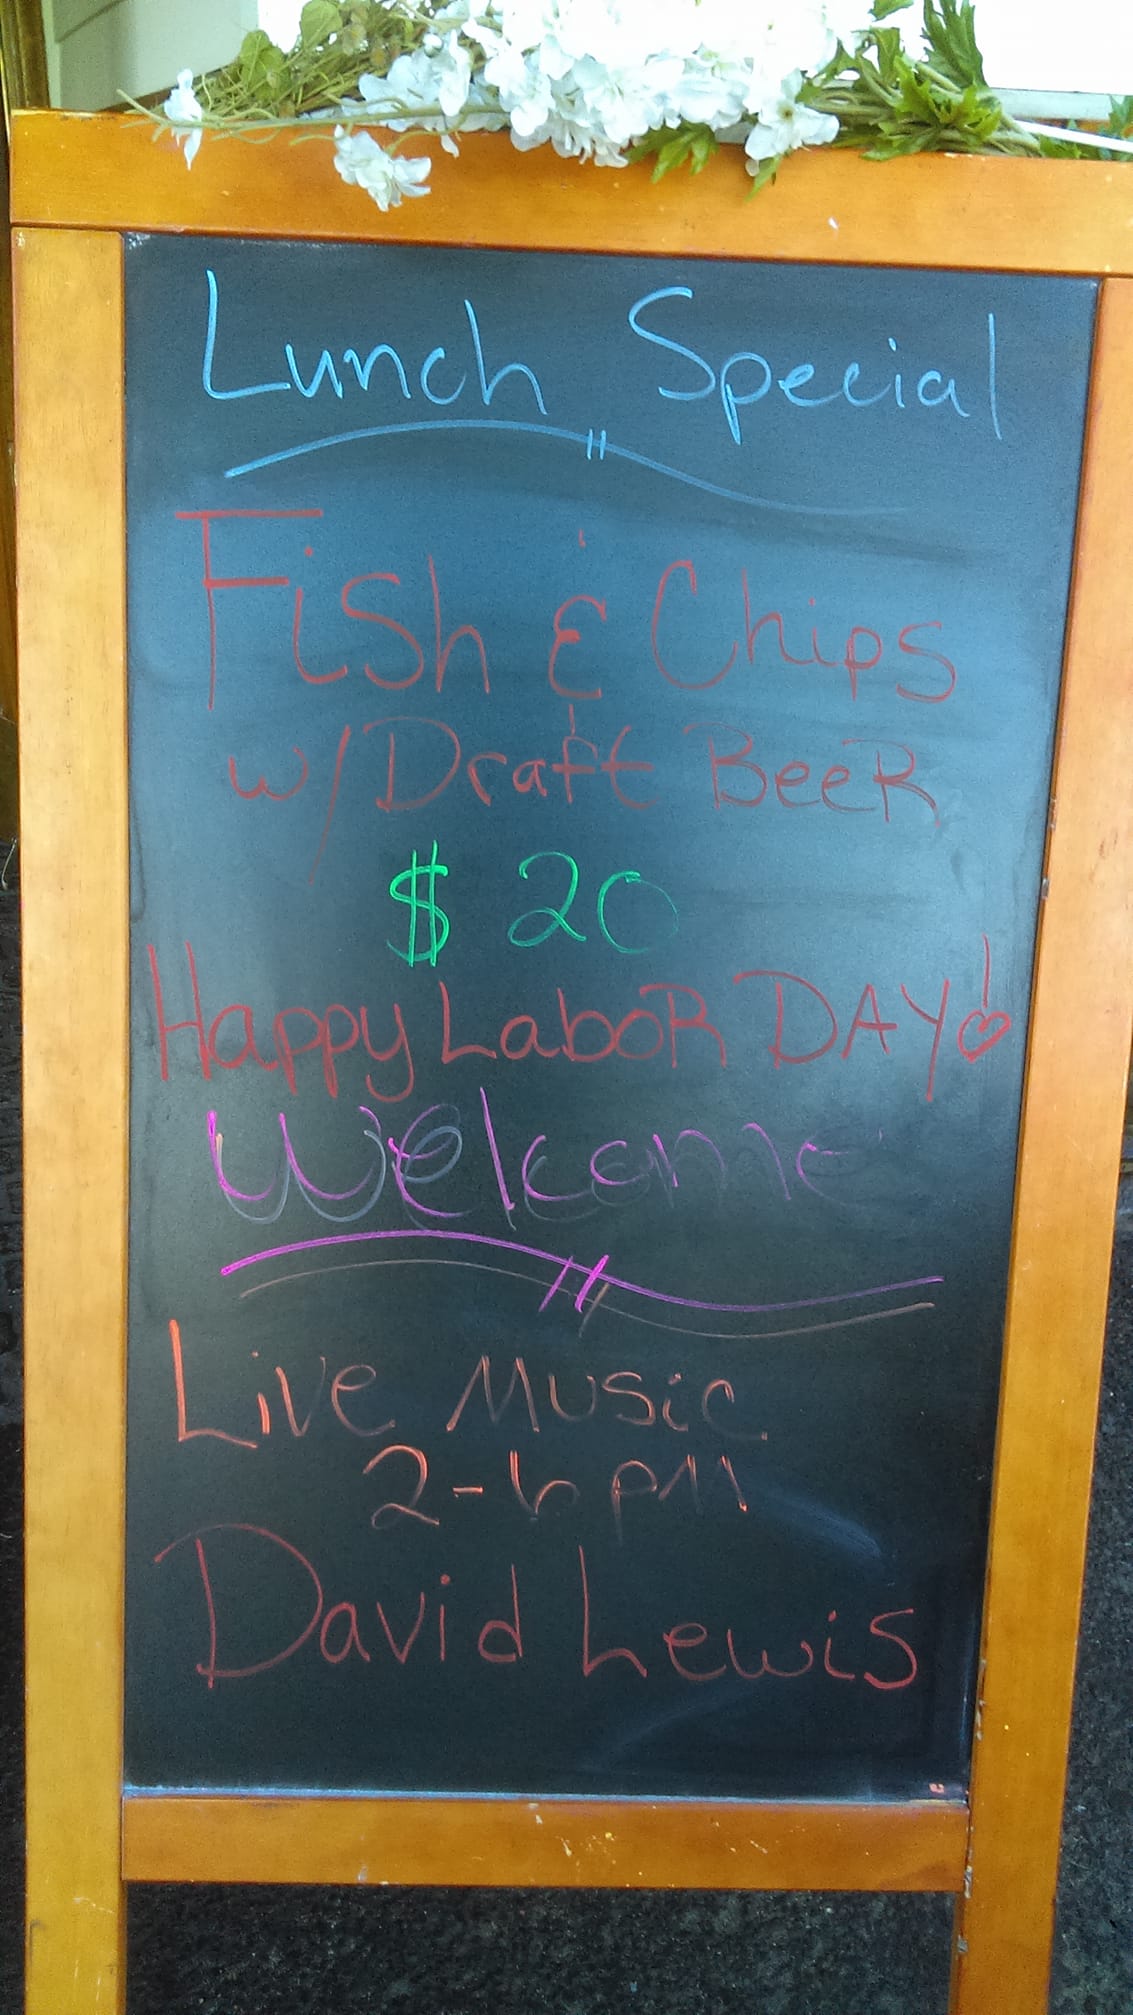 Lunch Special
Fish & Chips
w/ Draft BeeR
$ 20
Happy LaboR DAY!
Welcome
Live Music
2-6 pm
David Lewis